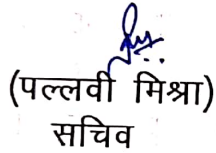 (पल्लवी मिश्रा)
सचिव